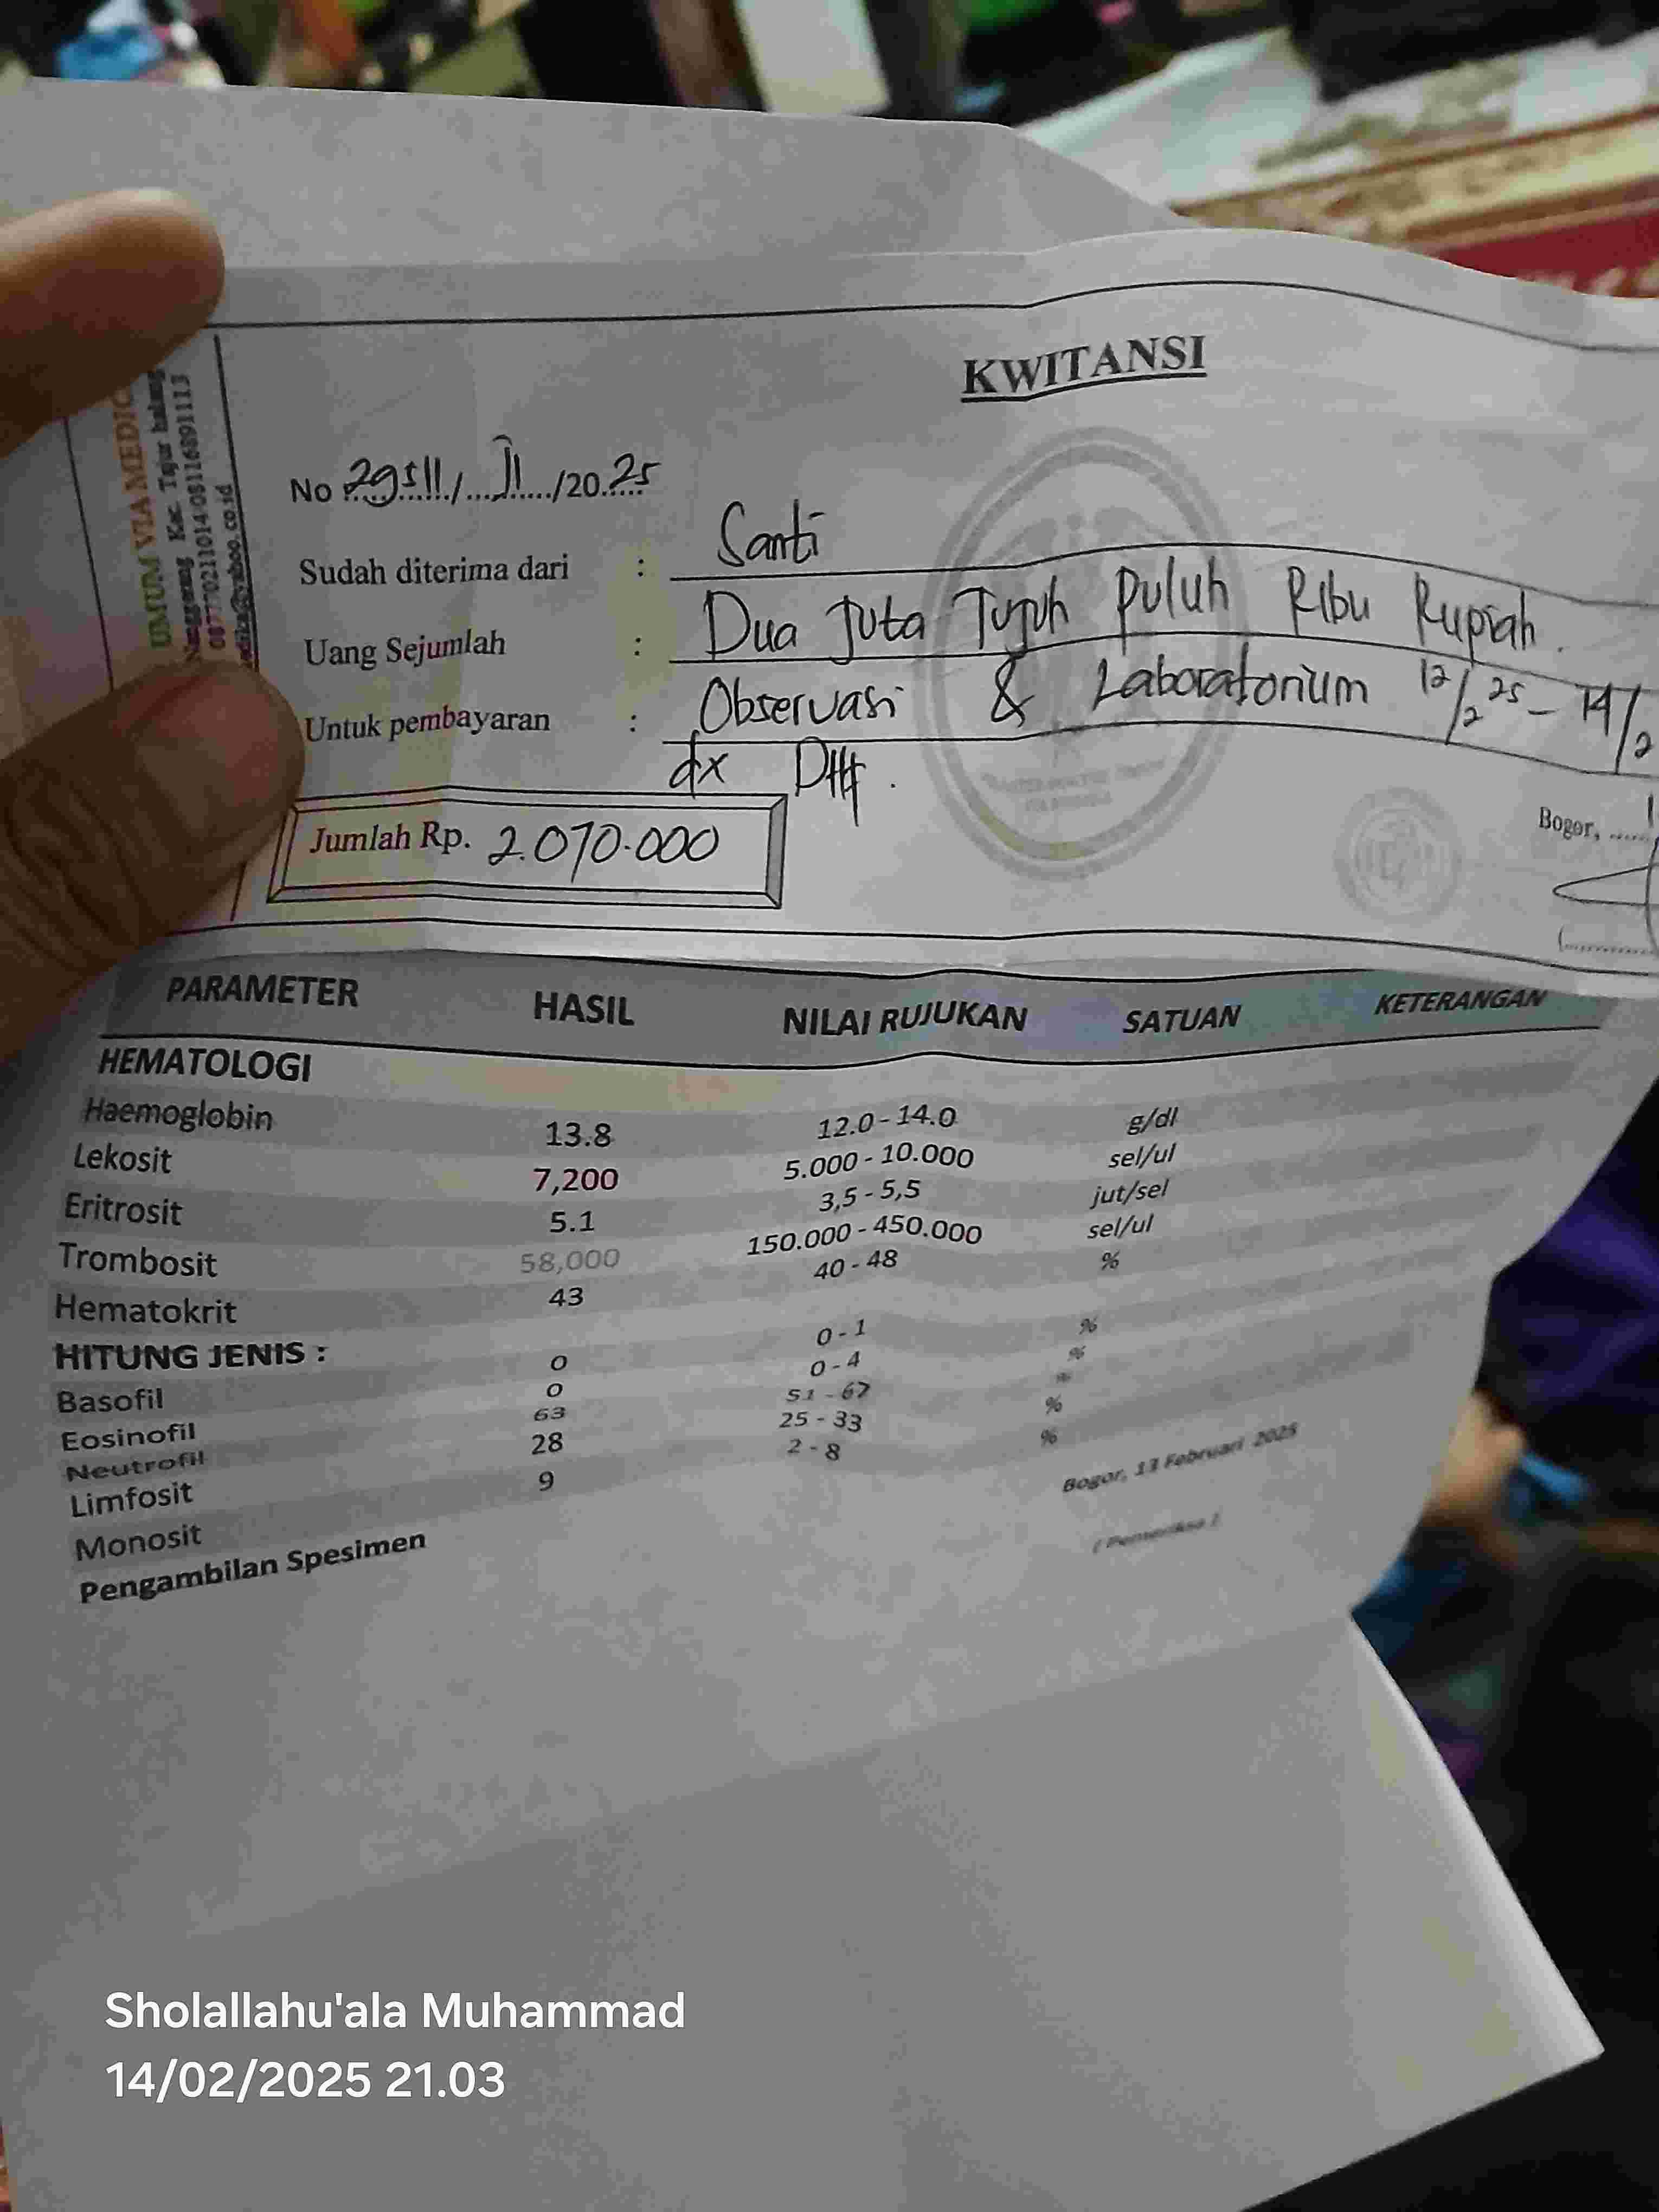 KWITANSI
UMUM VIA MEDIC
Nanggerang Kec. Tajur halang
087770211014-08111689
yahoo.co.id
No 29511/ II /20.25
Sudah diterima dari : Santi
Uang Sejumlah : Dua Juta Tujuh Puluh Ribu Rupiah.
Untuk pembayaran : Observasi & Laboratorium 12/2 25 - 14/2
dx DHF.
Jumlah Rp. 2.070.000
Bogor, ......
PARAMETER HASIL NILAI RUJUKAN SATUAN KETERANGAN
HEMATOLOGI
Haemoglobin 13.8 12.0 - 14.0 g/dl
Lekosit 7,200 5.000 - 10.000 sel/ul
Eritrosit 5.1 3,5 - 5,5 jut/sel
Trombosit 58,000 150.000 - 450.000 sel/ul
Hematokrit 43 40 - 48 %
HITUNG JENIS :
Basofil 0 0 - 1 %
Eosinofil 0 0 - 4 %
Neutrofil 63 51 - 67 %
Limfosit 28 25 - 33 %
Monosit 9 2 - 8 %
Pengambilan Spesimen
Bogor, 13 Februari 2025
( Pemeriksa )
Sholallahu'ala Muhammad
14/02/2025 21.03